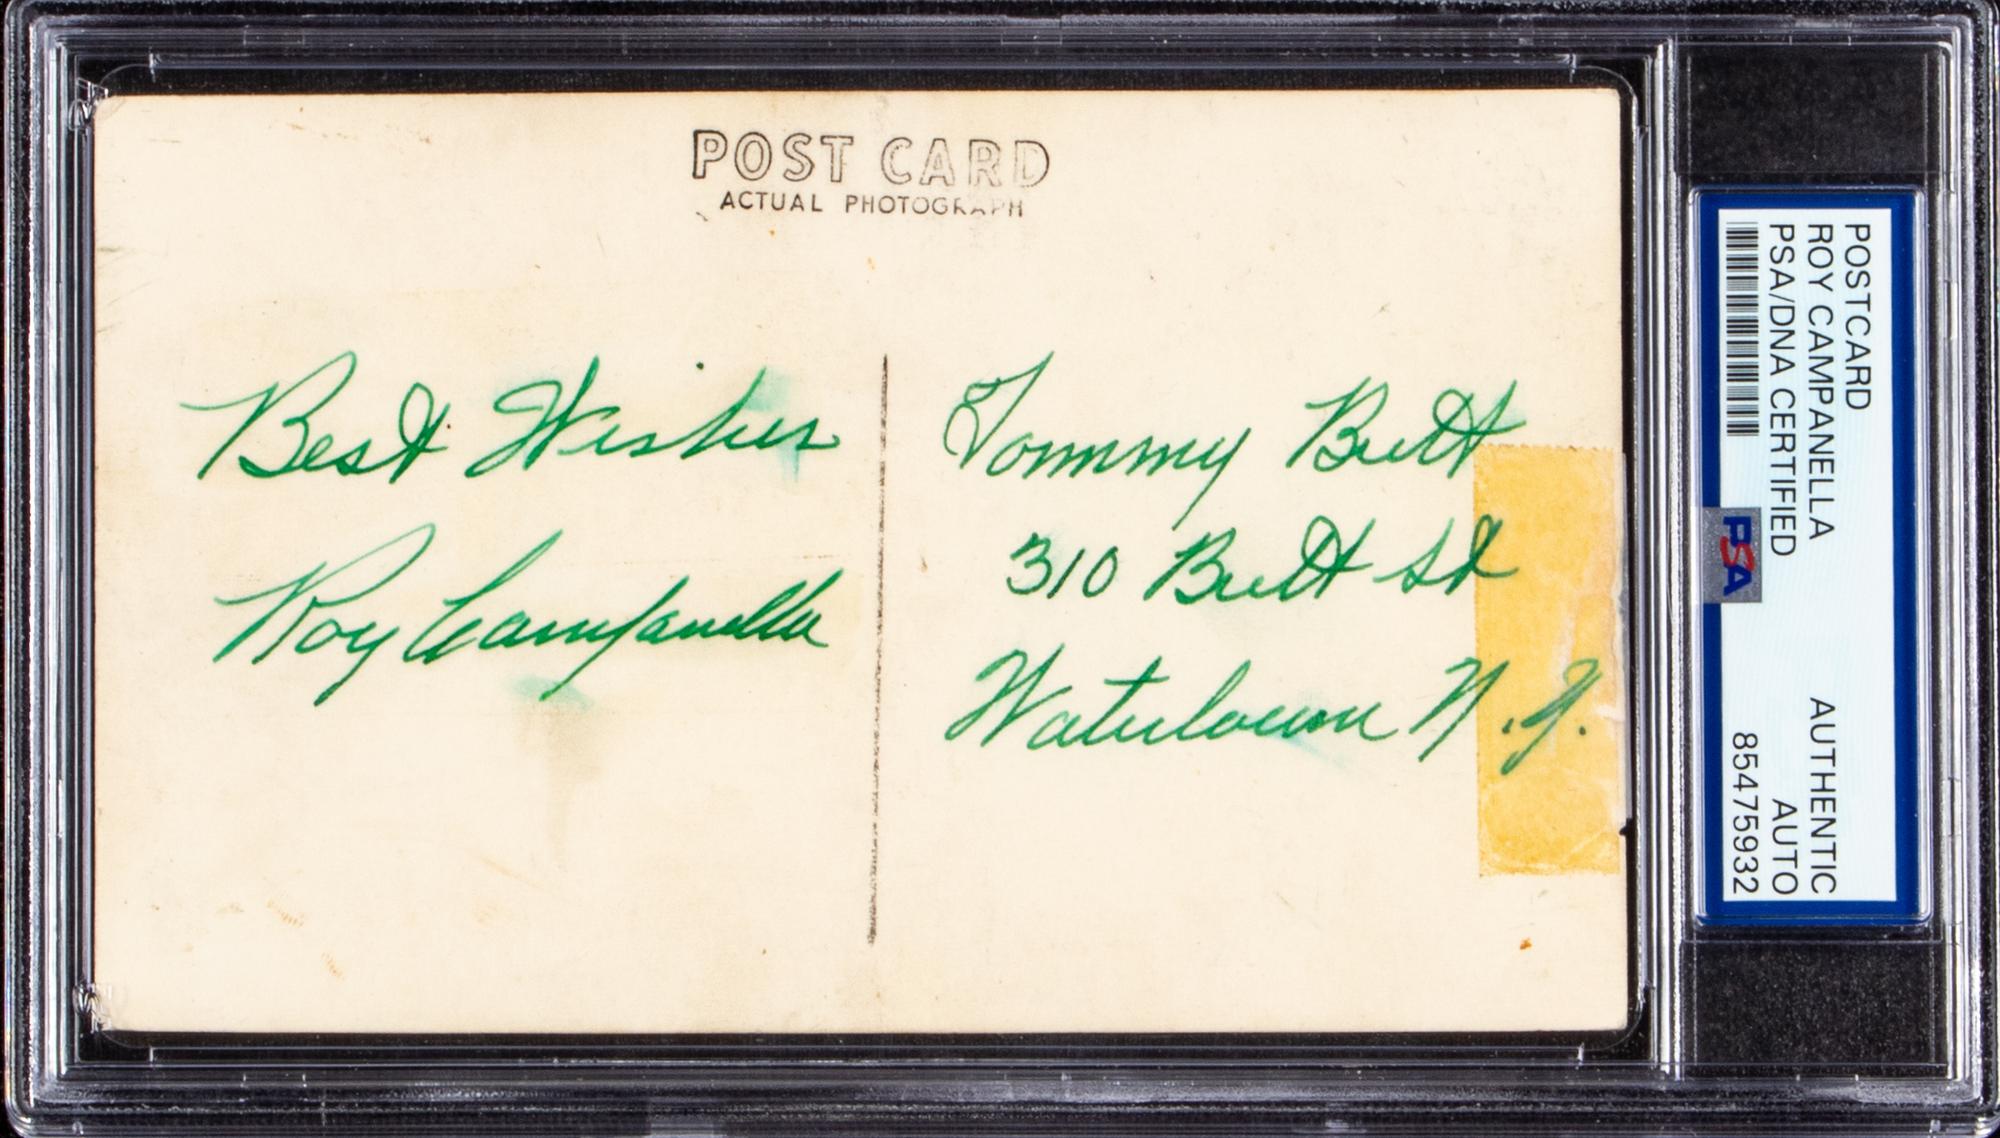 POST CARD
ACTUAL PHOTOGRAPH
Best Wishes
Roy Campanella
Tommy Butt
310 Butt St
Watertown N.Y.
POSTCARD
ROY CAMPANELLA
PSA/DNA CERTIFIED
AUTHENTIC
AUTO
85475932
PSA